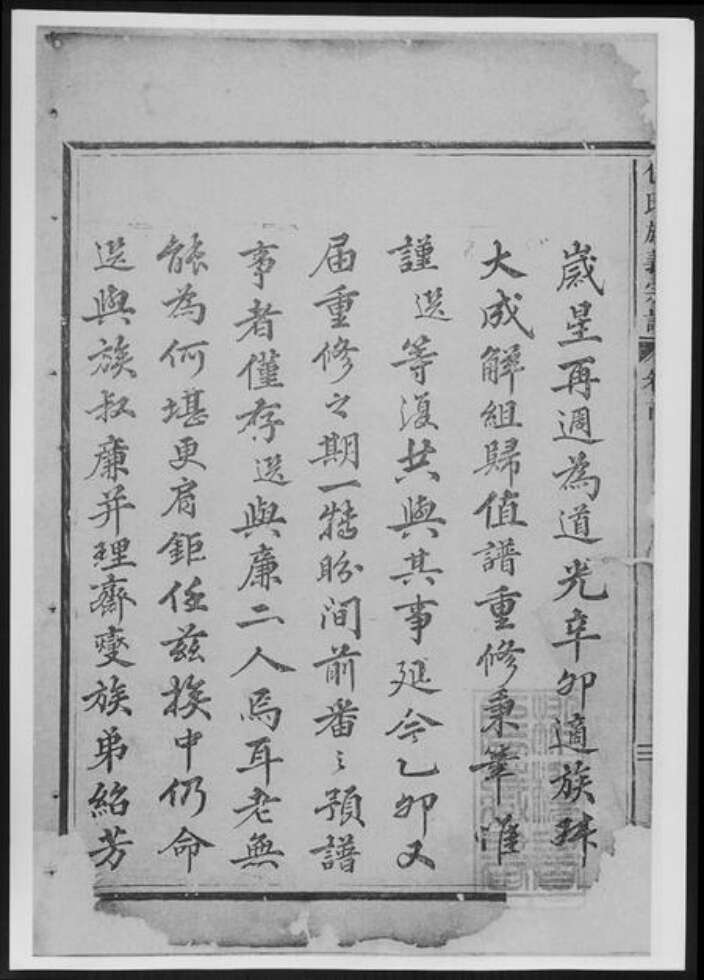 氏
宗譜
歲星再週為道光辛卯適族
大成解組歸值譜重修秉筆惟
謹選等復共與其事延今乙卯又
届重修之期一轉盼间前番之預譜
事者僅存選與廉二人焉耳老無
能為何堪更肩鉅任兹挨中仍命
選與族叔廉并理齋燮族弟紹芳